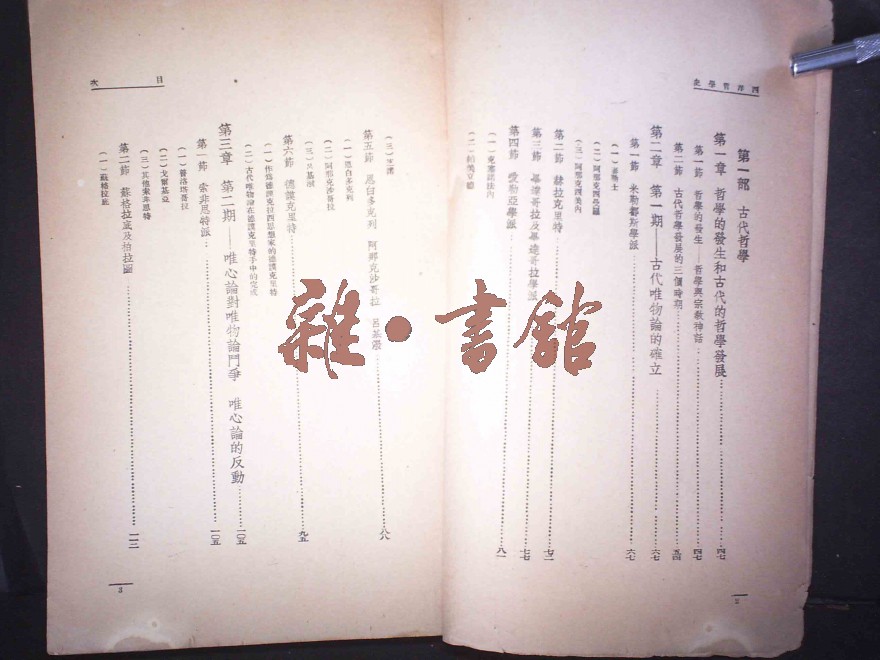 西洋哲學史
第一部 古代哲學
第一章 哲學的發生和古代的哲學發展 四七
第一節 哲學的發生——哲學與宗教神話 四七
第二節 古代哲學發展的三個時期 五四
第二章 第一期——古代唯物論的確立 六七
第一節 米勒都斯學派 六七
(一)
(二)阿那克西曼
(三)阿那克西美內
第二節 赫拉克里特 七二
第三節 畢達哥拉及畢達哥拉學派 七七
第四節 愛勒亞學派 八一
(一)克塞諾法內
(二)
2
目 次
(三)
第五節 恩白多克列 阿那克沙哥拉 呂基潑 八八
(一)恩白多克列
(二)阿那克沙哥拉
(三)呂基潑
第六節 德謨克里特 九五
(一)作為德謨克拉西思想家的德謨克里特
(二)古代唯物論在德謨克里特手中的完成
第三章 第二期——唯心論對唯物論鬥爭 唯心論的反動 一〇五
第一節 索非思特派 一〇五
(一)普洛塔哥拉
(二)戈爾基亞
(三)其他索非思特
第二節 蘇格拉底及柏拉圖 一一三
(一)蘇格拉底
3
雜·書館